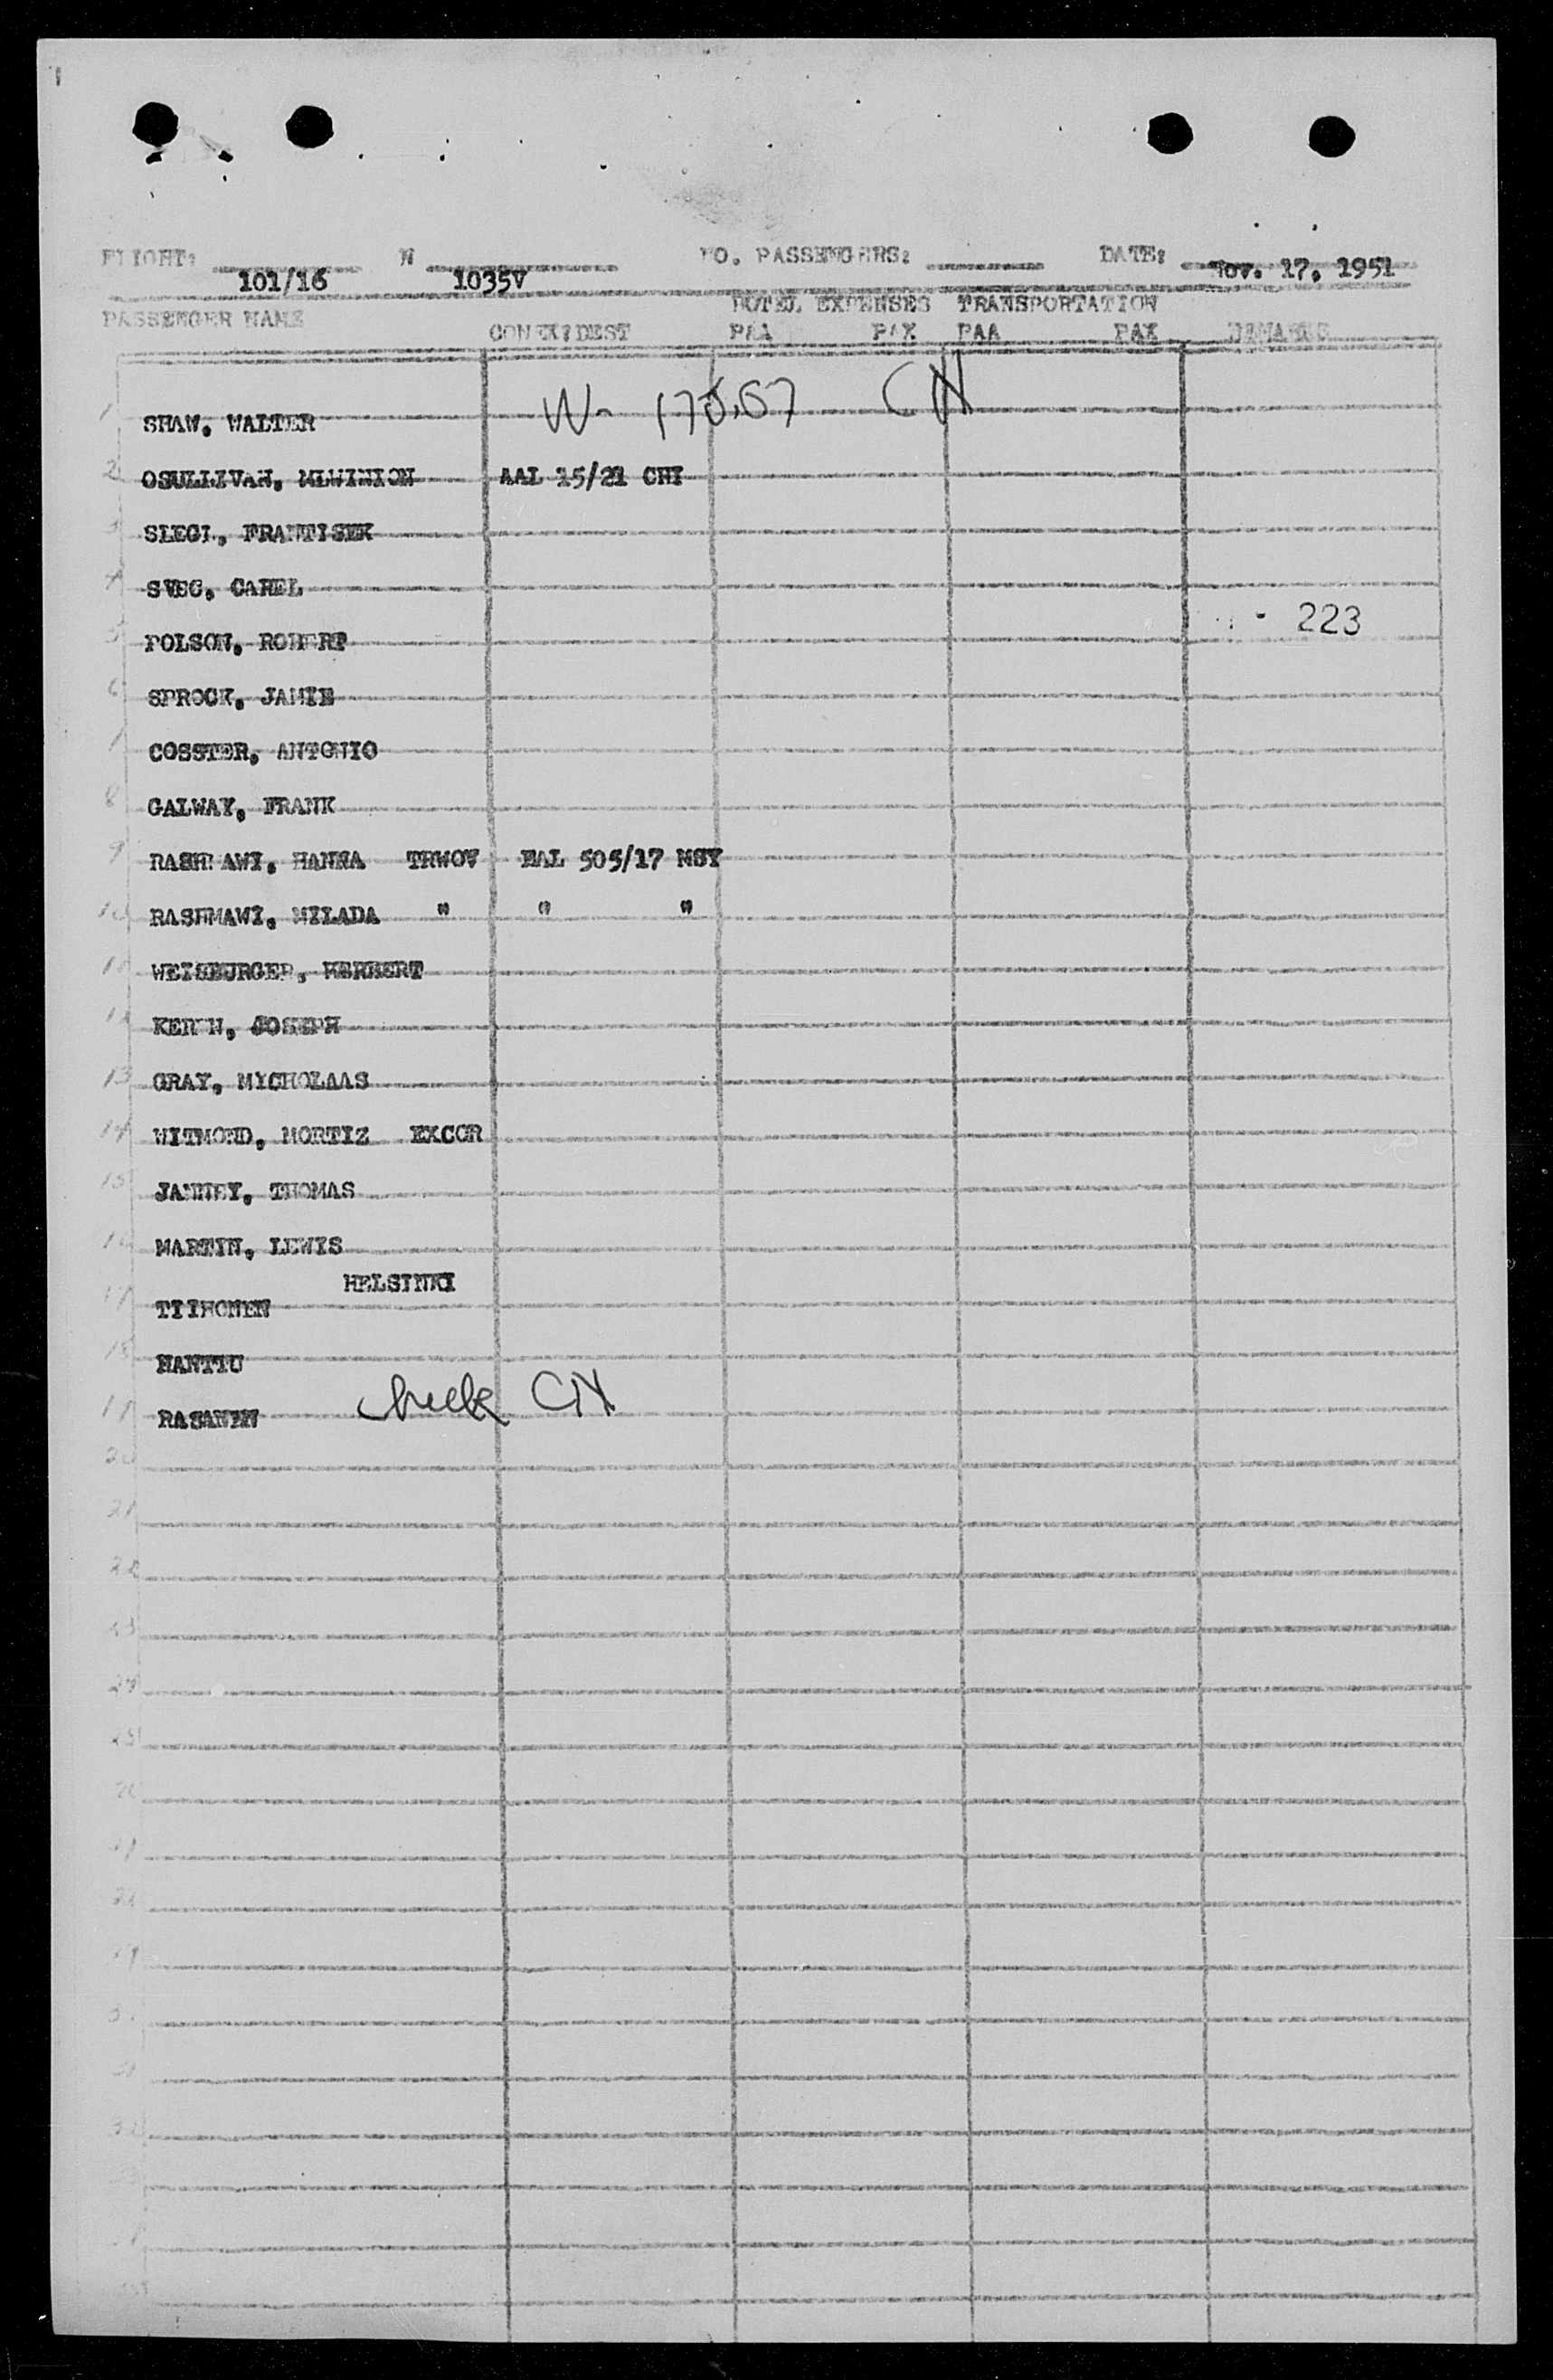 FLIGHT: 101/16 N 1035V NO. PASSENGERS: DATE: Nov. 17, 1951
HOTEL EXPENSES TRANSPORTATION
PASSENGER NAME CONEX:DEST PAA PAX PAA PAX REMARKS
1 SHAW, WALTER W- 175.67 CN
2 OSULLIVAN, AAL 15/21 CHI
3 SLEGL, FRANTISEK
4 SVEC, CAREL
5 POLSON, ROBERT 223
6 SPROCK, JAMIE
7 COSSTER, ANTONIO
8 GALWAY, FRANK
9 RASHMAWI, HANNA TRWOV EAL 505/17 MSY
10 RASHMAWI, MILADA " " "
11 WEISBURGER, HERBERT
12 JOSEPH
13 GRAY, MYCHOLAAS
14 WITMOND, MORTIZ EXCOR
15 JANNEY, THOMAS
16 MARTIN, LEWIS
HELSINKI
17 TIIHONEN
18 MANTTU
19 RASANEN check CN
20
21
22
23
24
25
26
27
28
29